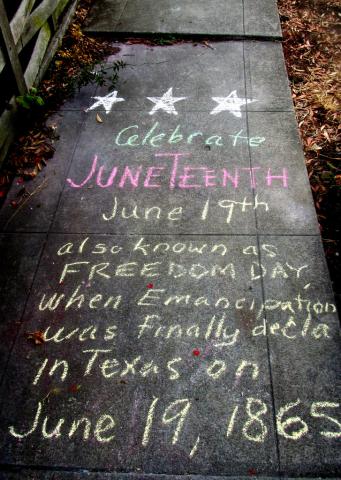 Celebrate
JUNETEENTH
June 19th
also known as
FREEDOM DAY,
when Emancipation
was finally decla
in Texas on
June 19, 1865